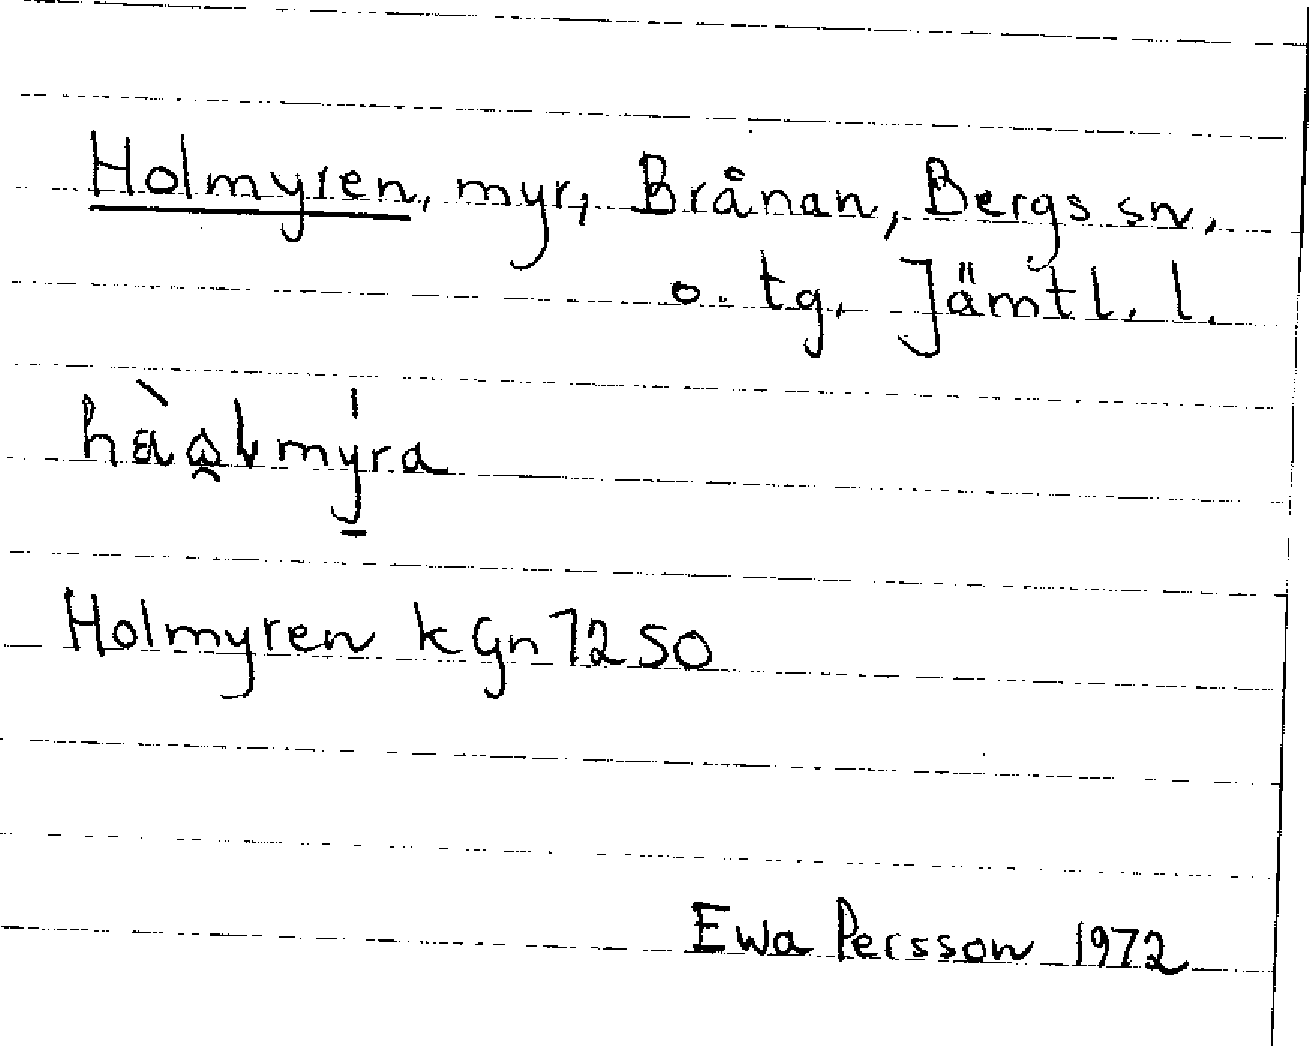 Holmyren, myr, Brånan, Bergs sn,
o. tg. Jämtl. l.
Holmyren k Gn 7250
Ewa Persson 1972